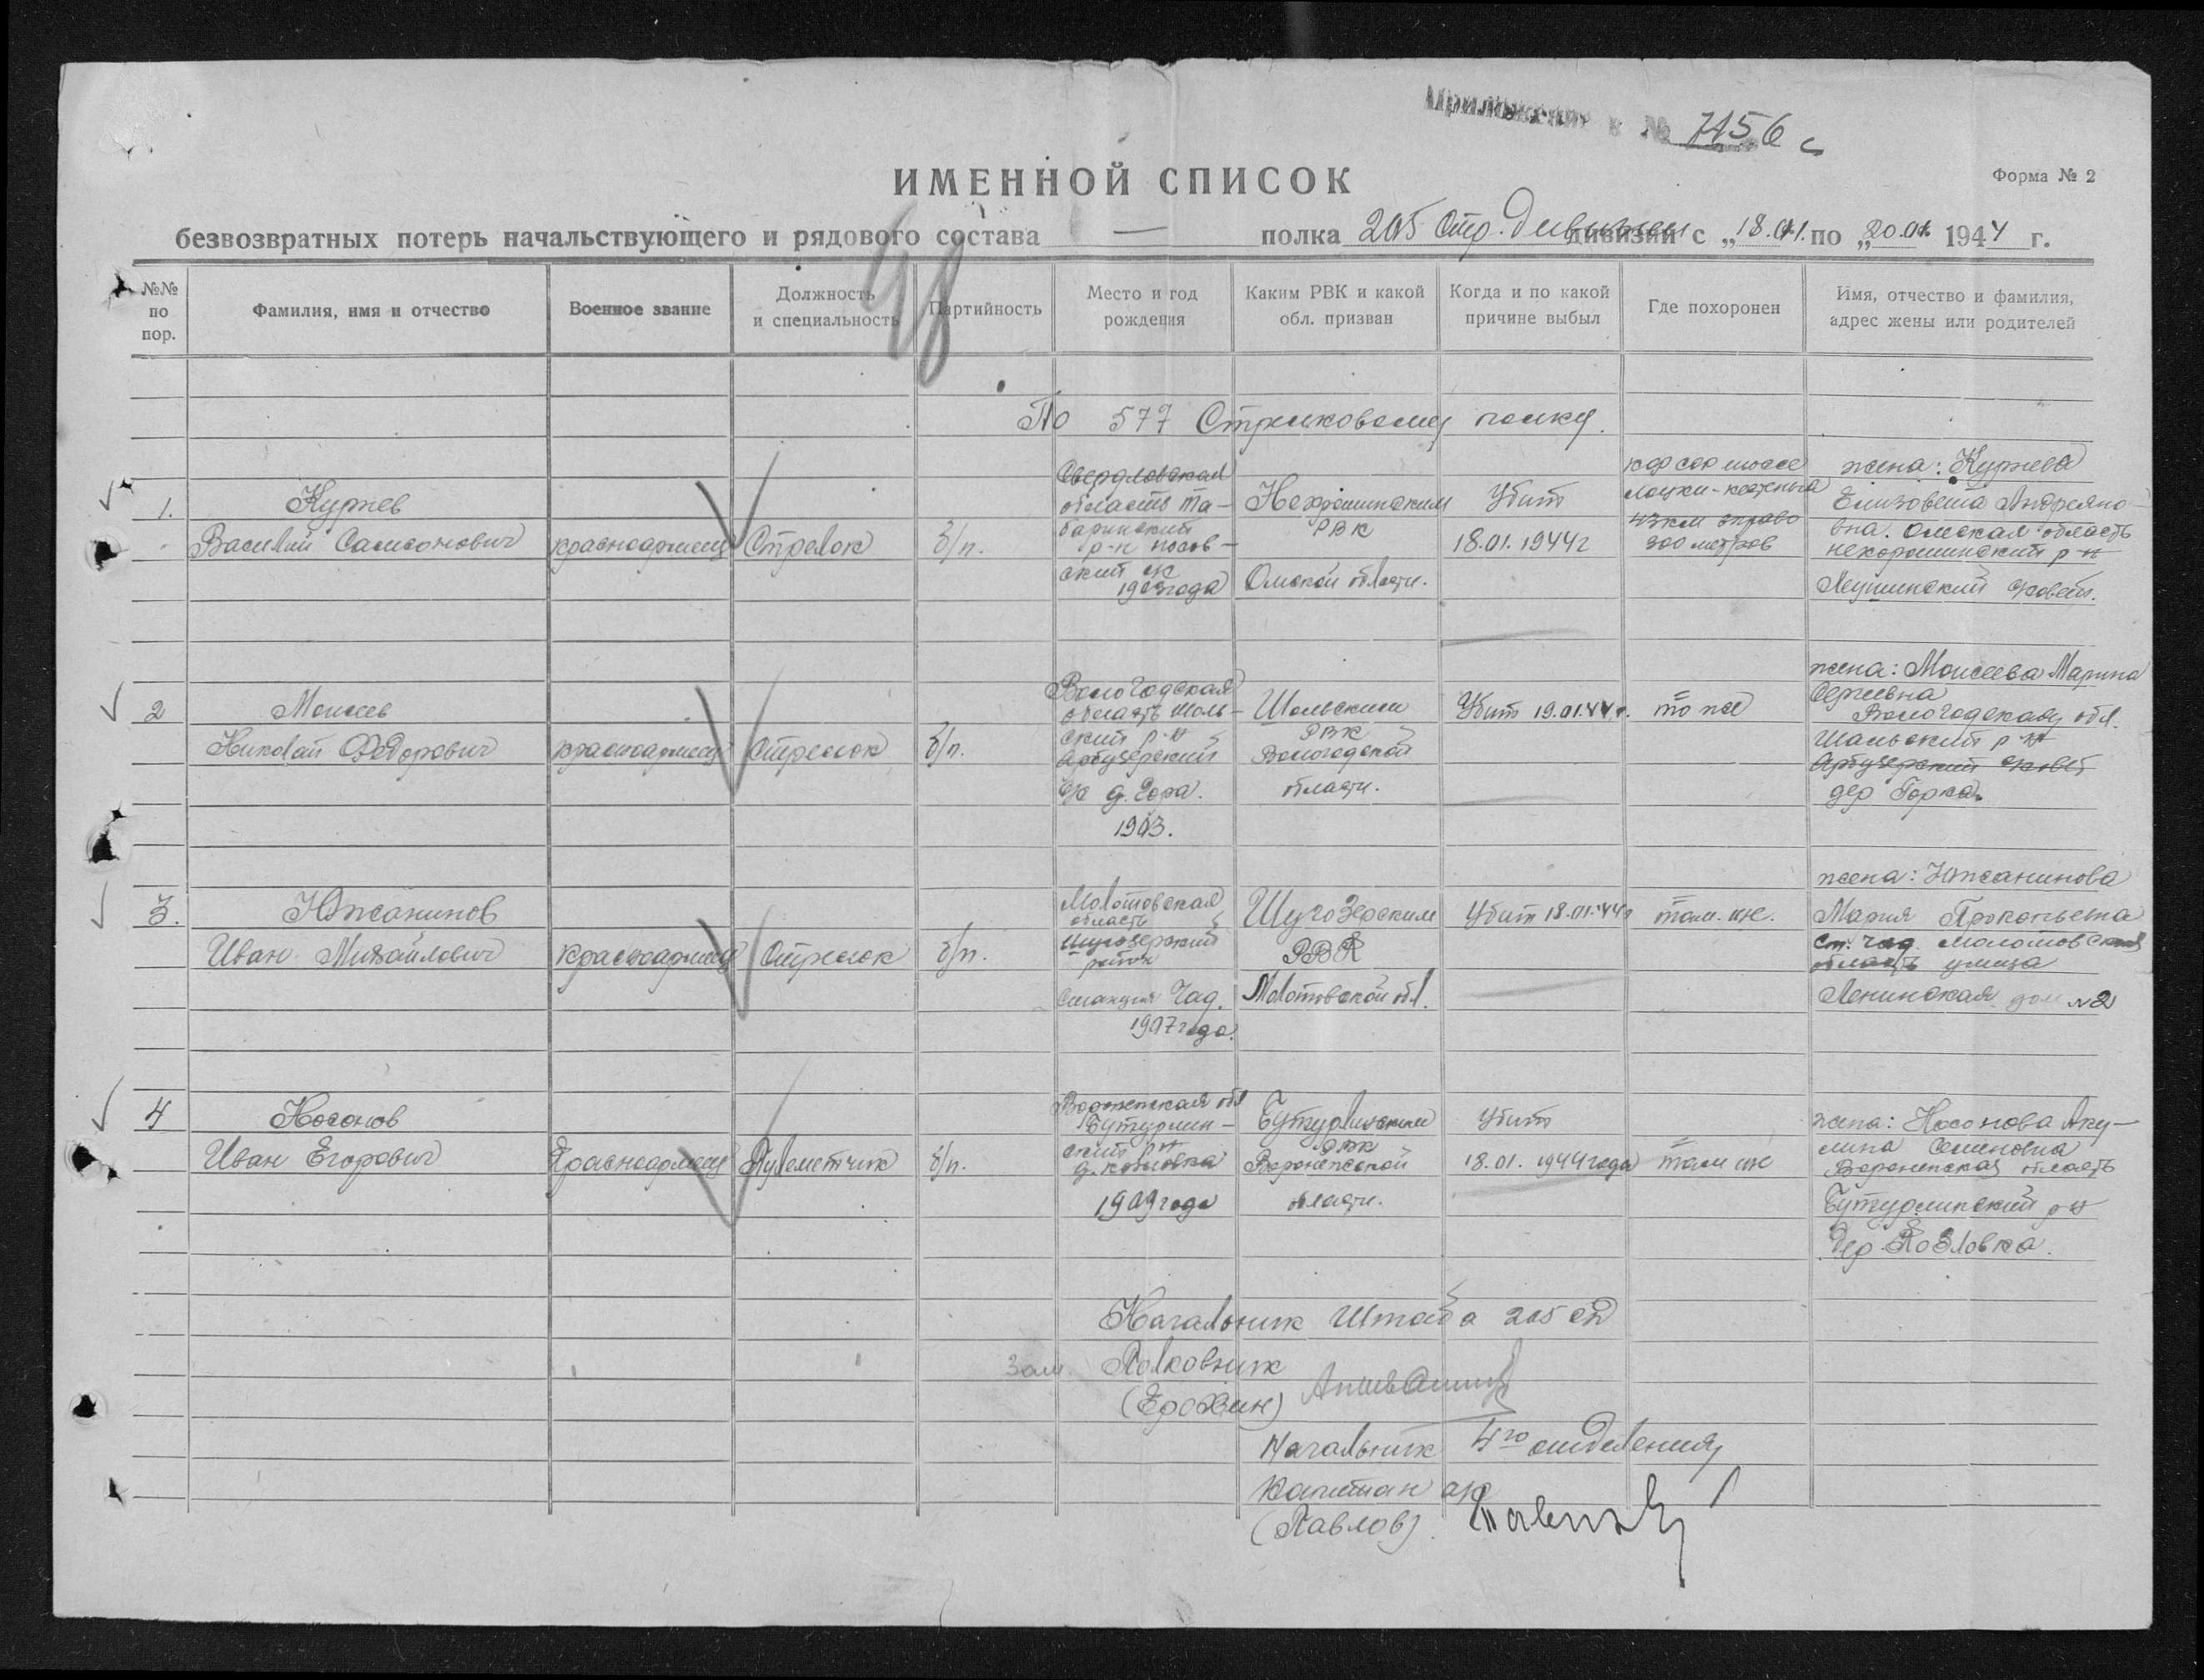 Приложение к № 7156 с
ИМЕННОЙ СПИСОК
Форма № 2
безвозвратных потерь начальствующего и рядового состава — полка 205 Стр. дивизии дивизии с „18.01. по „20.01. 1944 г.
48
№№ по пор.
Фамилия, имя и отчество
Военное звание
Должность и специальность
Партийность
Место и год рождения
Каким РВК и какой обл. призван
Когда и по какой причине выбыл
Где похоронен
Имя, отчество и фамилия, адрес жены или родителей
По 577 Стрелковому полку.
1.
Куриев
Василий Самсонович
красноармеец
Стрелок
б/п.
Свердловская
область Та-
баринский
р-н носов-
ский с/с
1903года
РВК
Омской области.
Убит
18.01.1944г
43км вправо
300 метров
жена: Куриева
Елизовета Андреяно-
вна. Омская область
нехорошинский р-н
Леушинский с/совет.
2
Моисеев
Николай Федорович
красноармеец
стрелок
б/п.
Вологодская
область Шоль-
ский р-н
Артузерский
с/с д. Гора.
1903.
Шольским
РВК
Вологодской
области.
Убит 19.01.44г.
то же
жена: Моисеева Марина
Сергеевна
Вологодская обл.
Шольский р-н
Артузерский с/совет
дер Горка.
3.
Южанинов
Иван Михайлович
красноармеец
стрелок
б/п.
Молотовская
область
Щучозерский
район
Станция Чад.
1907года.
Щучозерским
РВК
Молотовской обл.
Убит 18.01.44г
там же.
жена: Южанинова
Мария Прокопьевна
ст. Чад. Молотовская
область улица
Ленинская дом №2
4
Носонов
Иван Егорович
Красноармеец
Пулеметчик
б/п.
Воронежская обл
Бутурлин-
ский р-н
д. Козловка
1909года
Бутурлинским
РВК
Воронежской
области.
Убит
18.01.1944года
там же
жена: Носонова Аку-
лина Семеновна
Воронежская область
Бутурлинский р-н
дер. Козловка.
Начальник Штаба 205 сд
Зам. Полковник
(Ерохин)
Начальник 4го отделения
Капитан а/с
(Павлов).